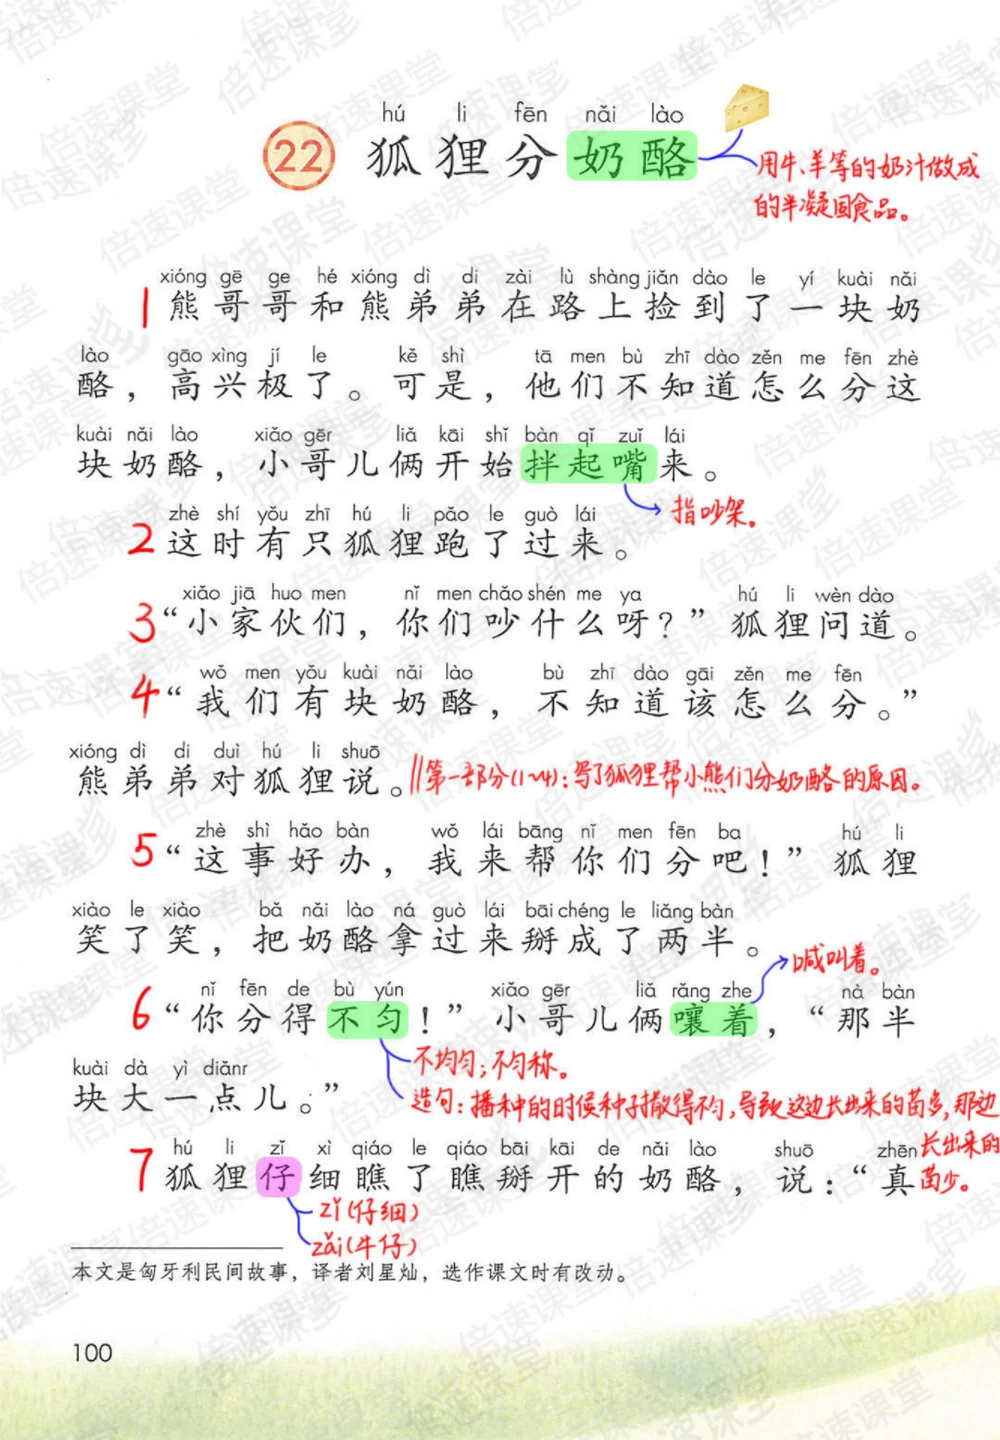 hú li fēn nǎi lào
22 狐狸分奶酪
用牛、羊等的奶汁做成
的半凝固食品。
xióng gē ge hé xióng dì di zài lù shàng jiǎn dào le yí kuài nǎi
1 熊哥哥和熊弟弟在路上捡到了一块奶
lào gāo xìng jí le kě shì tā men bù zhī dào zěn me fēn zhè
酪，高兴极了。可是，他们不知道怎么分这
kuài nǎi lào xiǎo gēr liǎ kāi shǐ bàn qǐ zuǐ lái
块奶酪，小哥儿俩开始拌起嘴来。
指吵架。
zhè shí yǒu zhī hú li pǎo le guò lái
2 这时有只狐狸跑了过来。
xiǎo jiā huo men nǐ men chǎo shén me ya hú li wèn dào
3 “小家伙们，你们吵什么呀？”狐狸问道。
wǒ men yǒu kuài nǎi lào bù zhī dào gāi zěn me fēn
4 “我们有块奶酪，不知道该怎么分。”
xióng dì di duì hú li shuō
熊弟弟对狐狸说。
//第一部分(1~4)：写了狐狸帮小熊们分奶酪的原因。
zhè shì hǎo bàn wǒ lái bāng nǐ men fēn ba hú li
5 “这事好办，我来帮你们分吧！”狐狸
xiào le xiào bǎ nǎi lào ná guò lái bāi chéng le liǎng bàn
笑了笑，把奶酪拿过来掰成了两半。
喊叫着。
nǐ fēn de bù yún xiǎo gēr liǎ rǎng zhe nà bàn
6 “你分得不匀！”小哥儿俩嚷着，“那半
kuài dà yì diǎnr
块大一点儿。”
不均匀；不匀称。
造句：播种的时候种子撒得不匀，导致这边长出来的苗多，那边
长出来的
苗少。
hú li zǐ xì qiáo le qiáo bāi kāi de nǎi lào shuō zhēn
7 狐狸仔细瞧了瞧掰开的奶酪，说：“真
zǐ(仔细)
zǎi(牛仔)
本文是匈牙利民间故事，译者刘星灿，选作课文时有改动。
100
倍速课堂